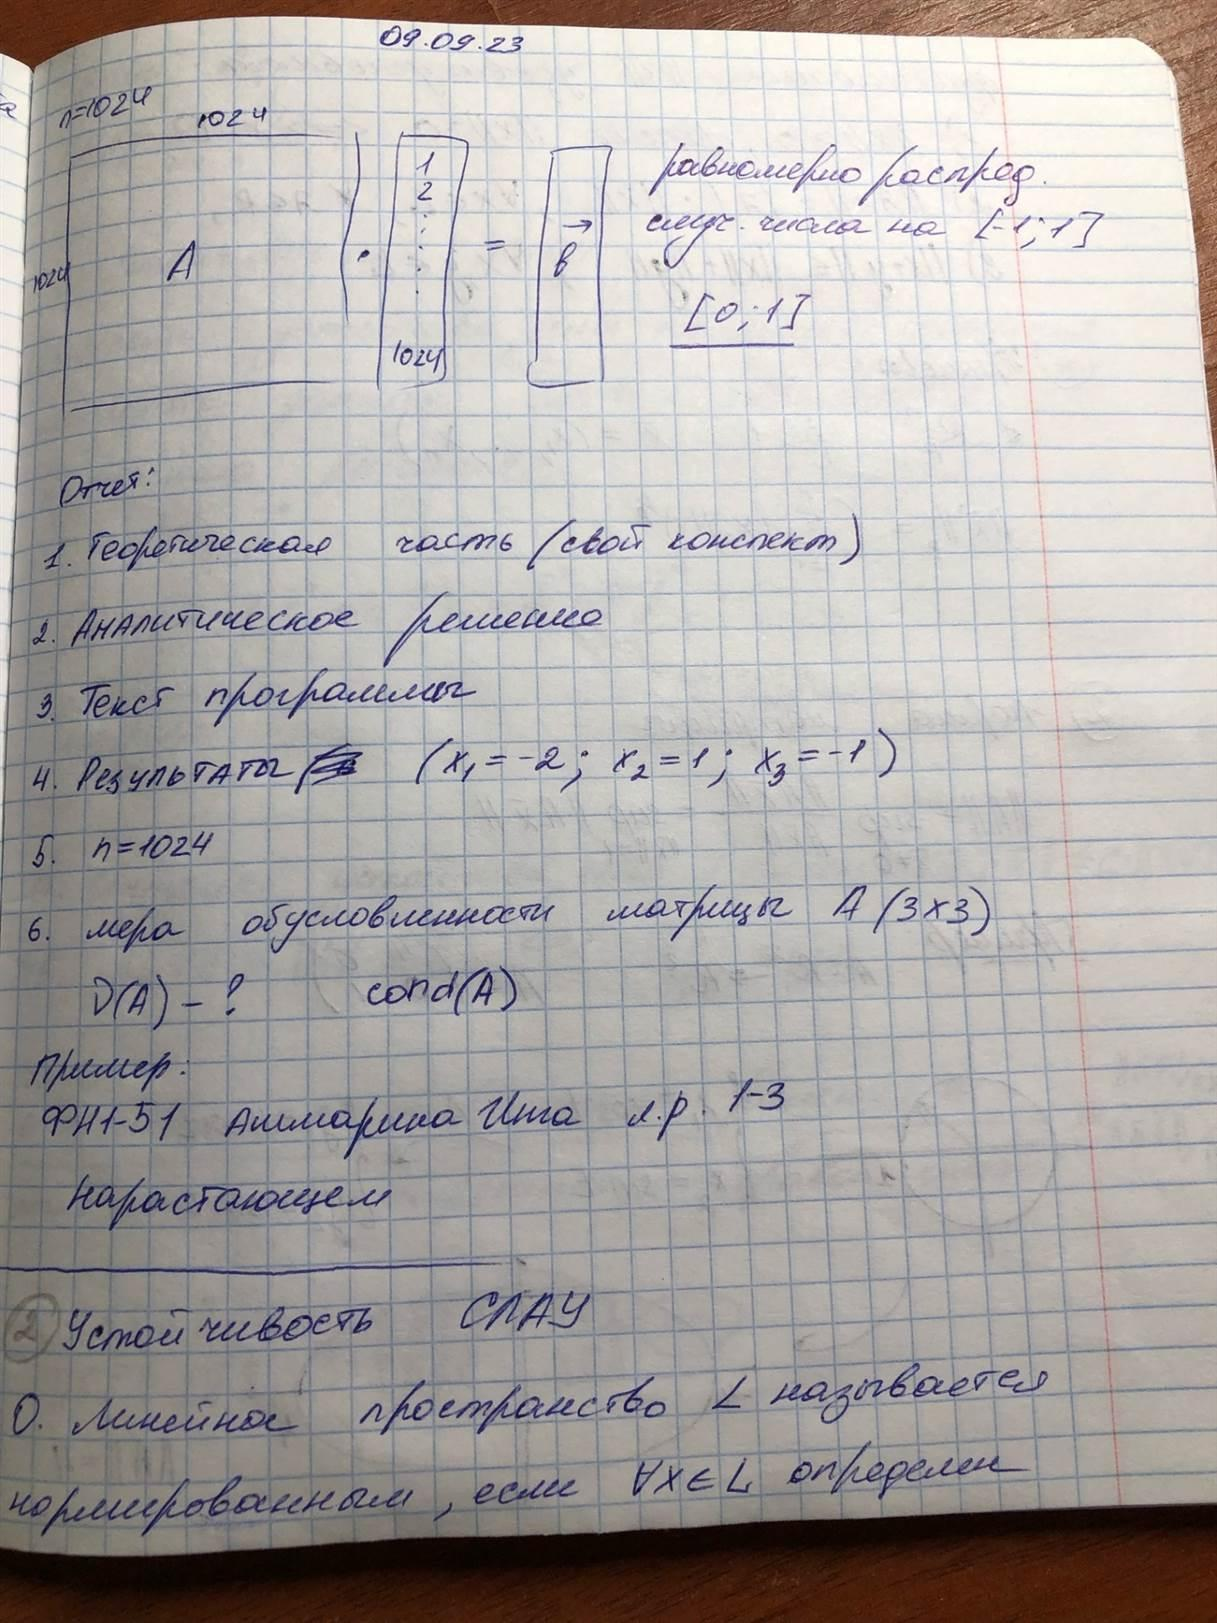 09.09.23
n=1024
1024
1024
A
·
1
2
1024
=
b
равномерно распред.
случ. числа на [-1; 1]
[0; 1]
Отчет:
1. Теоретическая часть (свой конспект)
2. Аналитическое решение
3. Текст программы
4. Результаты (x₁ = -2; x₂ = 1; x₃ = -1)
5. n=1024
6. мера обусловленности матрицы A (3x3)
D(A) - ? cond(A)
Пример:
ФН1-51 Инга л.р. 1-3
Нарастающем
2 Устойчивость СЛАУ
О. Линейное пространство L называется
нормированным, если ∀x∈L определен